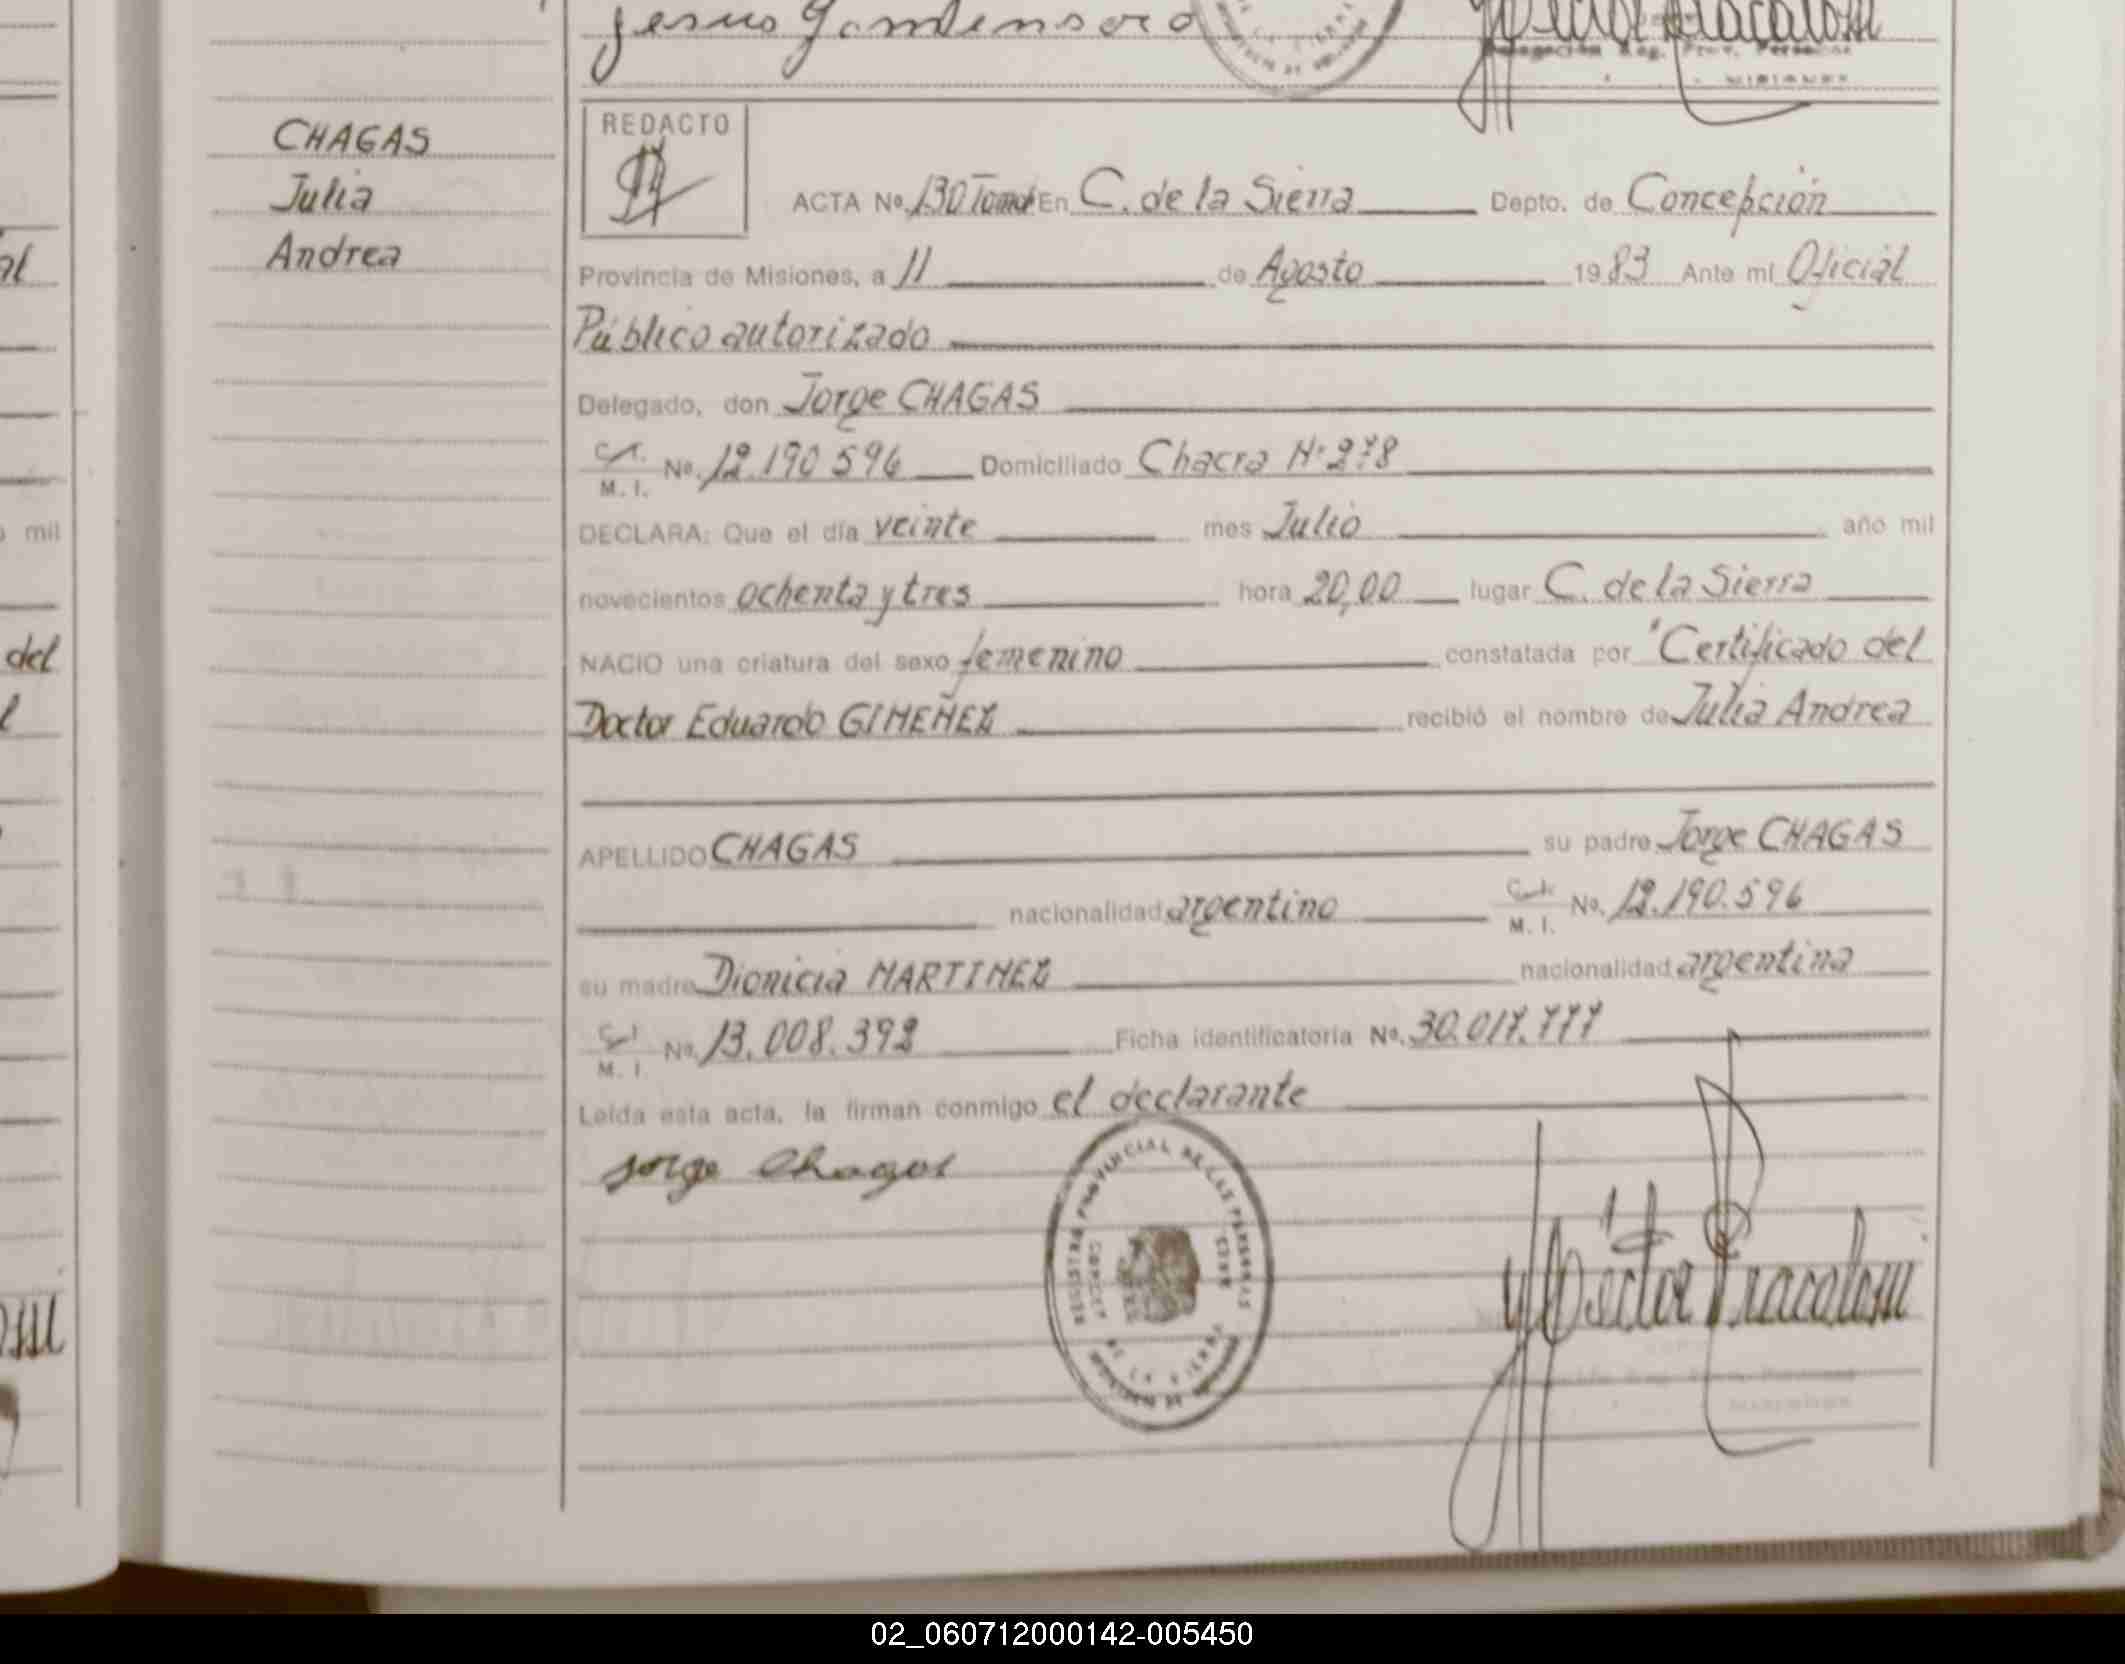 Jesus Gomensoro
CHAGAS
Julia
Andrea
REDACTO
ACTA Nº 130 Tomo I En C. de la Sierra Depto. de Concepción
Provincia de Misiones, a 11 de Agosto 1983 Ante mí Oficial
Público autorizado
Delegado, don Jorge CHAGAS
C.I.
M. I. Nº 12.190 596 Domiciliado Chacra Nº 278
DECLARA: Que el día veinte mes Julio año mil
novecientos ochenta y tres hora 20,00 lugar C. de la Sierra
NACIO una criatura del sexo femenino constatada por "Certificado del
Doctor Eduardo GIMEÑEZ recibió el nombre de Julia Andrea
APELLIDO CHAGAS su padre Jorge CHAGAS
nacionalidad argentino C.I.
M. I. No. 12.190.596
su madre Dionicia MARTINEZ nacionalidad argentina
C.I.
M. I. No. 13.008.392 Ficha identificatoria Nº. 30.017.777
Leída esta acta, la firman conmigo el declarante
Jorge Chagas
REGISTRO PROVINCIAL DE LAS PERSONAS
DE LA SIERRA
mil
del
02_060712000142-005450